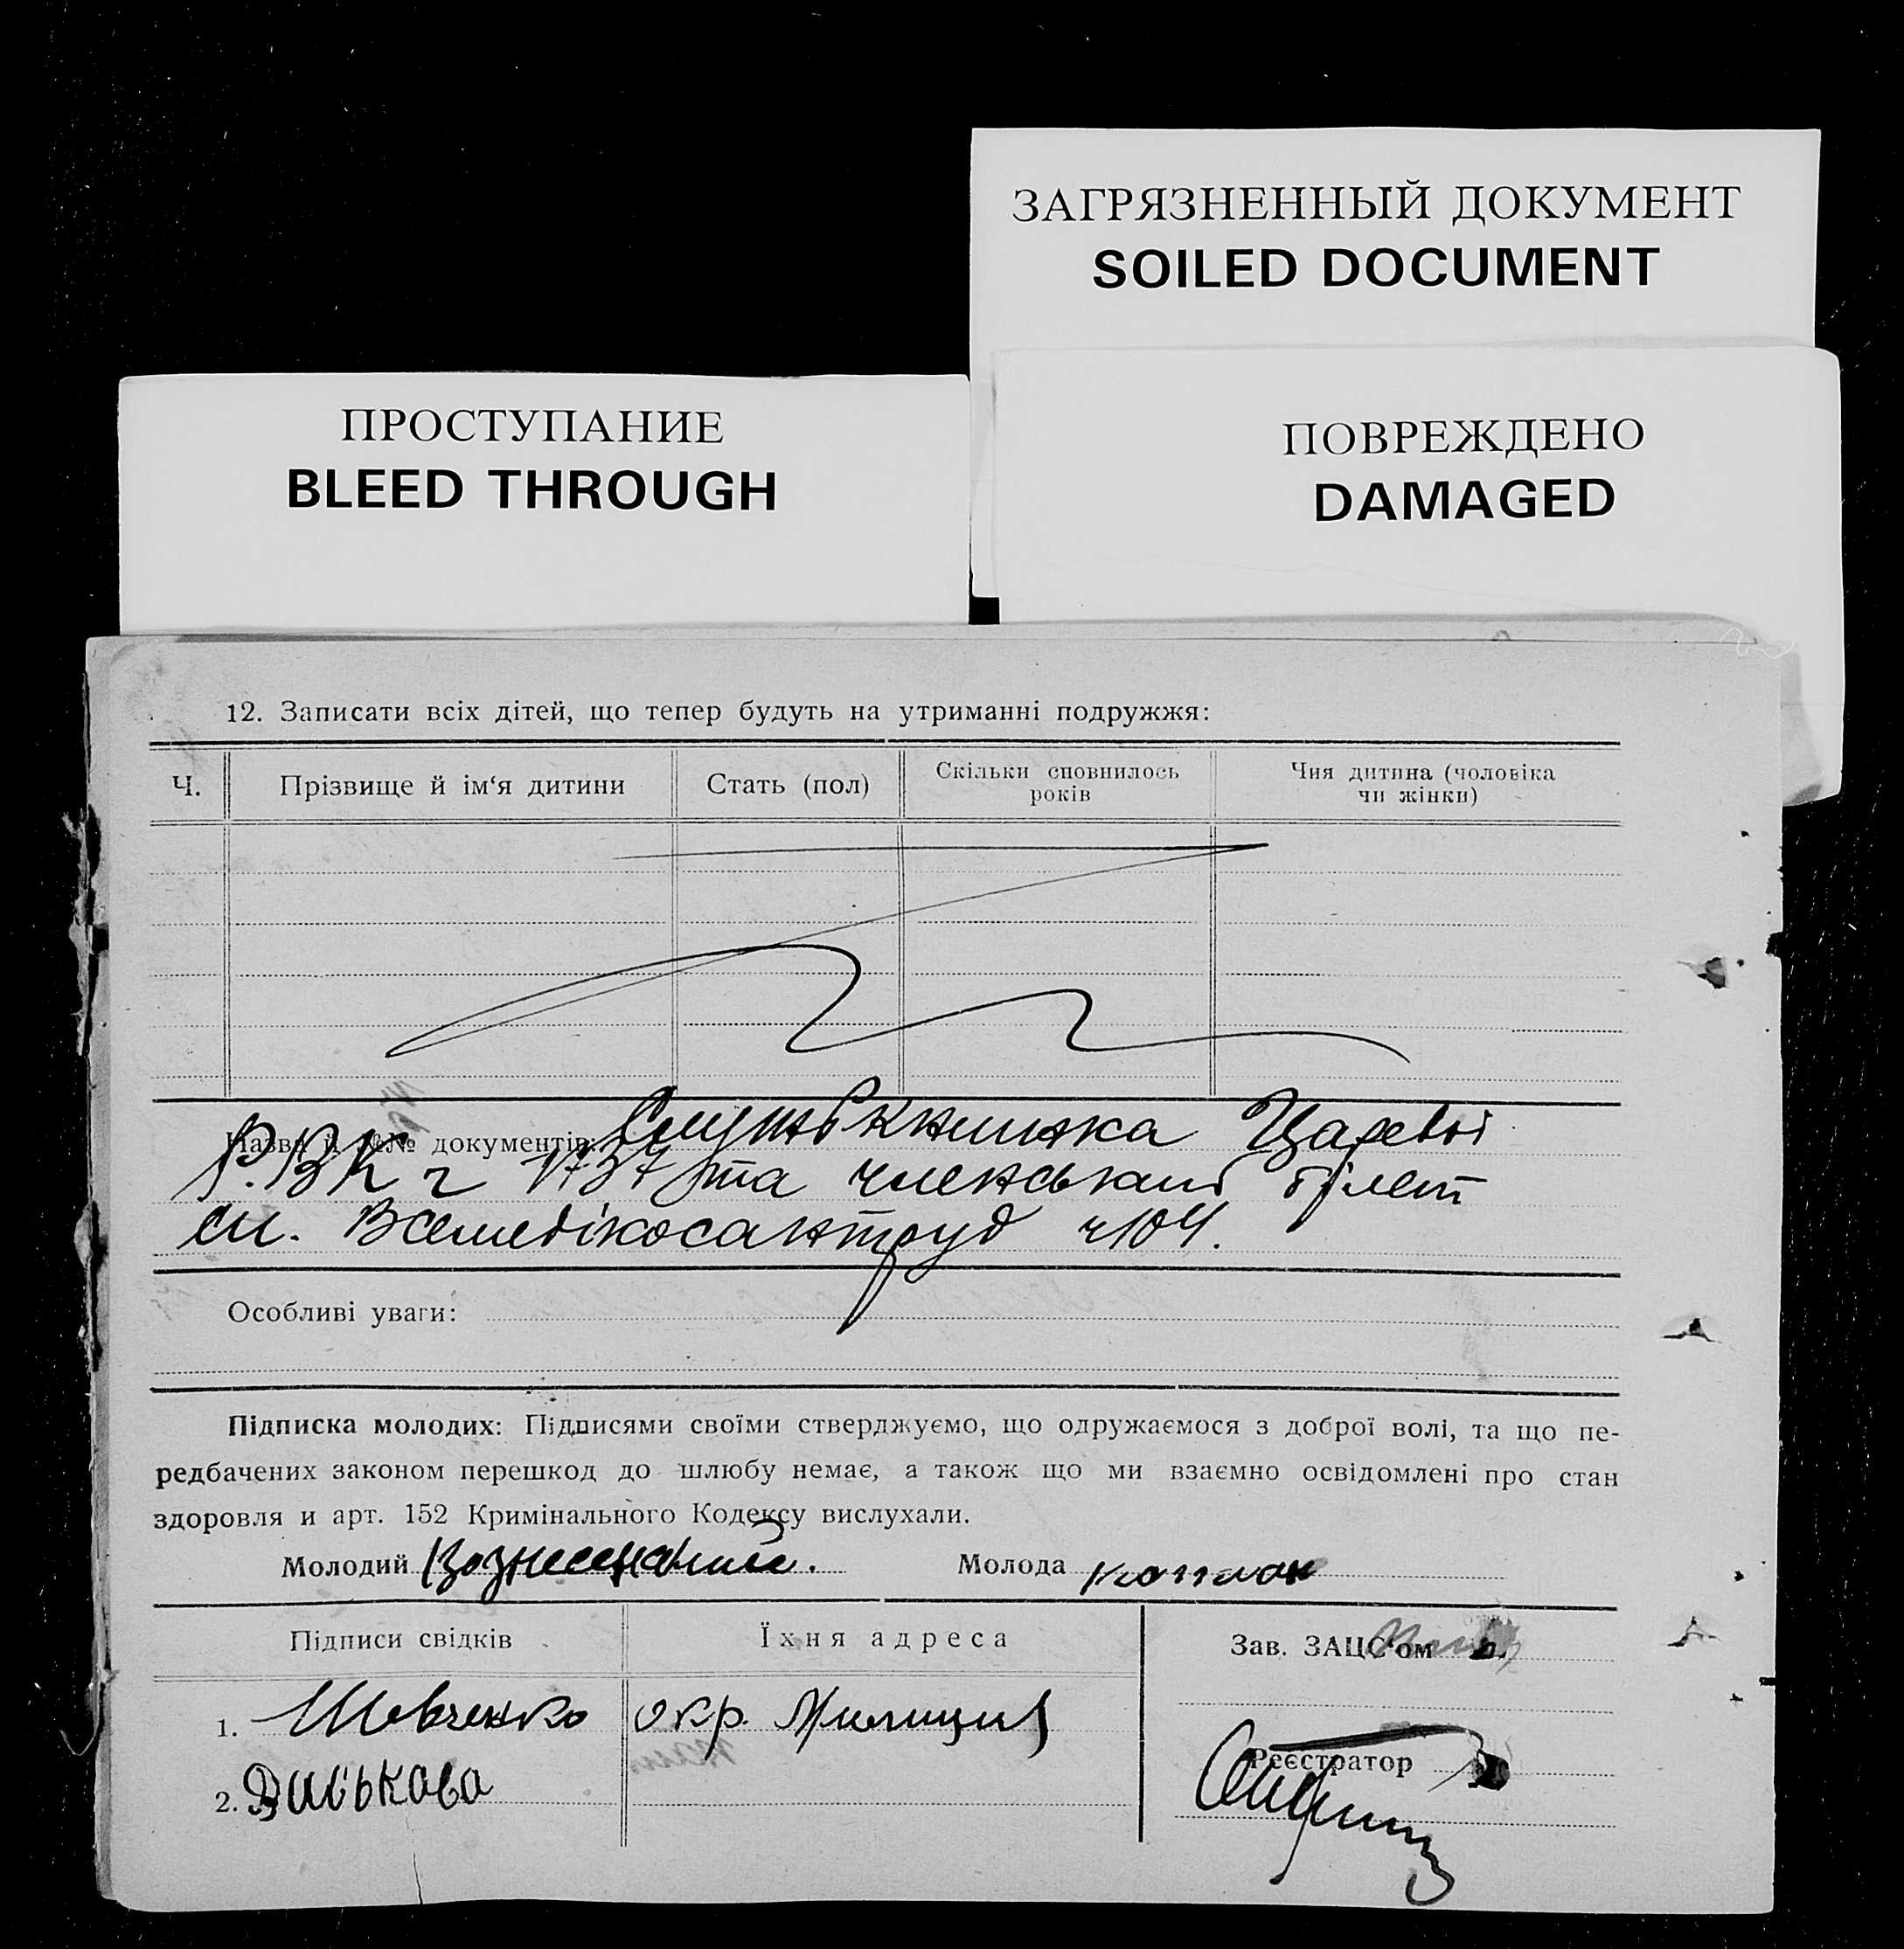 ЗАГРЯЗНЕННЫЙ ДОКУМЕНТ
SOILED DOCUMENT
ПРОСТУПАНИЕ
BLEED THROUGH
ПОВРЕЖДЕНО
DAMAGED
12. Записати всіх дітей, що тепер будуть на утриманні подружжя:
Ч. Прізвище й ім‘я дитини Стать (пол) Скільки сповнилось років Чия дитина (чоловіка чи жінки)
Назва й №№ документів: Служб книжка
Р.В.К ч 1737 та членський білет
сп. Всемедікосантруд ч 104.
Особливі уваги:
Підписка молодих: Підписями своїми стверджуємо, що одружаємося з доброї волі, та що пе-
редбачених законом перешкод до шлюбу немає, а також що ми взаємно освідомлені про стан
здоровля и арт. 152 Кримінального Кодексу вислухали.
Молодий Вознесенский. Молода Каплан
Підписи свідків Їхня адреса Зав. ЗАЦС‘ом
1. Шевченко окр. Милиция
Реєстратор
2.